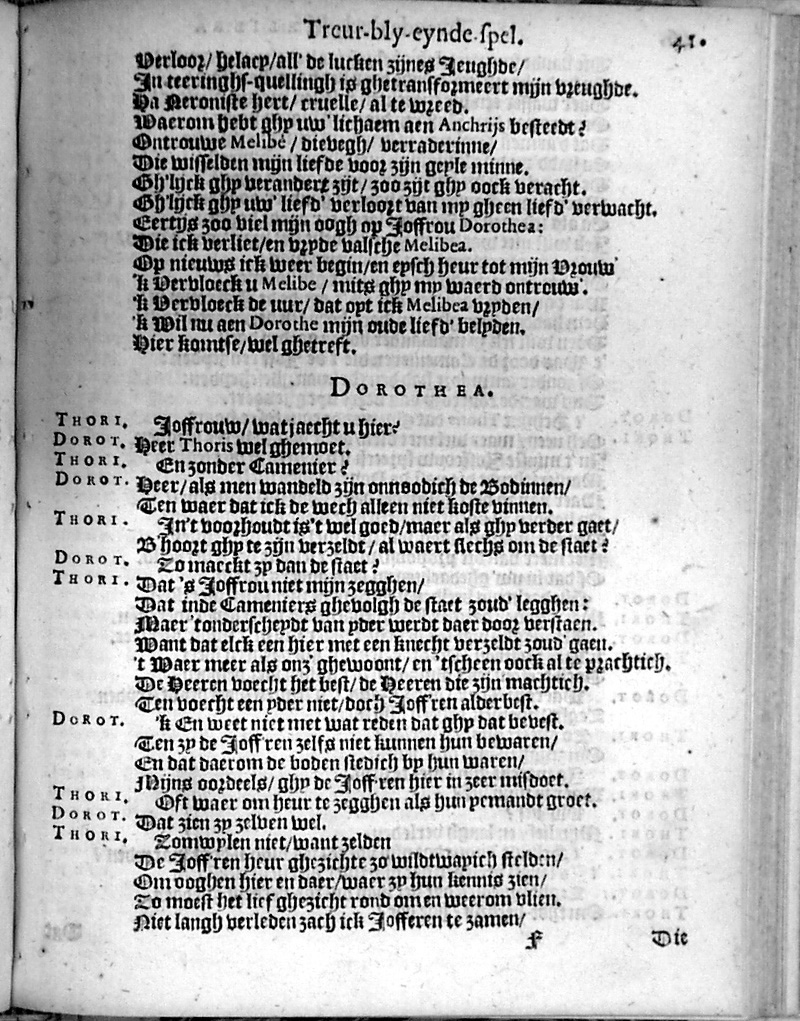 Treur-bly-eynde-spel. 41.
Verloor/ helaep/ all' de lucken zijnes Jeughde/
In teeringhs-quellingh is ghetransformeert mijn vreughde.
Ha Neroniste hert/ cruelle/ al te wreed.
Waerom hebt ghy uw' lichaem aen Anchrijs besteedt?
Ontrouwe Melibé/ dievegh/ verraderinne/
Die wisselden mijn liefde voor zijn geyle minne.
Gh'lijck ghy verandert zijt/ zoo zijt ghy oock veracht.
Gh'lijck ghy uw' liefd' verloort van my gheen liefd' verwacht.
Eertijs zoo viel mijn oogh op Joffrou Dorothea:
Die ick verliet/ en vryde valsche Melibea.
Op nieuws ick weer begin/ en eysch heur tot mijn Vrouw'
'k Vervloeck u Melibe/ mits ghy my waerd ontrouw'.
'k Vervloeck de uur/ dat opt ick Melibea vryden/
'k Wil nu aen Dorothe mijn oude liefd' belyden.
Hier komtse/ wel ghetreft.
DOROTHEA.
THORI. Joffrouw/ wat jaecht u hier?
DOROT. Heer Thoris wel ghemoet.
THORI. En zonder Camenier?
DOROT. Heer/ als men wandeld zijn onnoodich de Bodinnen/
Ten waer dat ick de wech alleen niet koste vinnen.
THORI. In't voorhoudt is't wel goed/ maer als ghy verder gaet/
B'hoort ghy te zijn verzeldt/ al waert slechs om de staet?
DOROT. Zo maeckt zy dan de staet?
THORI. Dat 's Joffrou niet mijn zegghen/
Dat inde Cameniers ghevolgh de staet zoud' legghen:
Maer 'tonderscheydt van yder werdt daer door verstaen.
Want dat elck een hier met een knecht verzeldt zoud' gaen.
't Waer meer als onz' ghewoont/ en 'tscheen oock al te prachtich.
De Heeren voecht het best/ de Heeren die zijn machtich.
Ten voecht een yder niet/ doch Joff'ren alderbest.
DOROT. 'k En weet niet met wat reden dat ghy dat bevest.
Ten zy de Joff'ren zelfs niet kunnen hun bewaren/
En dat daerom de boden stedich by hun waren/
Mijns oordeels/ ghy de Joff'ren hier in zeer misdoet.
THORI. Oft waer om heur te zegghen als hun yemandt groet.
DOROT. Dat zien zy zelven wel.
THORI. Zomwylen niet/ want zelden
De Joff'ren heur ghezichte zo wildtwayich stelden/
Om ooghen hier en daer/ waer zy hun kennis zien/
Zo moest het lief ghezicht rond om en weerom vlien.
Niet langh verleden zach ick Jofferen te zamen/
F Die